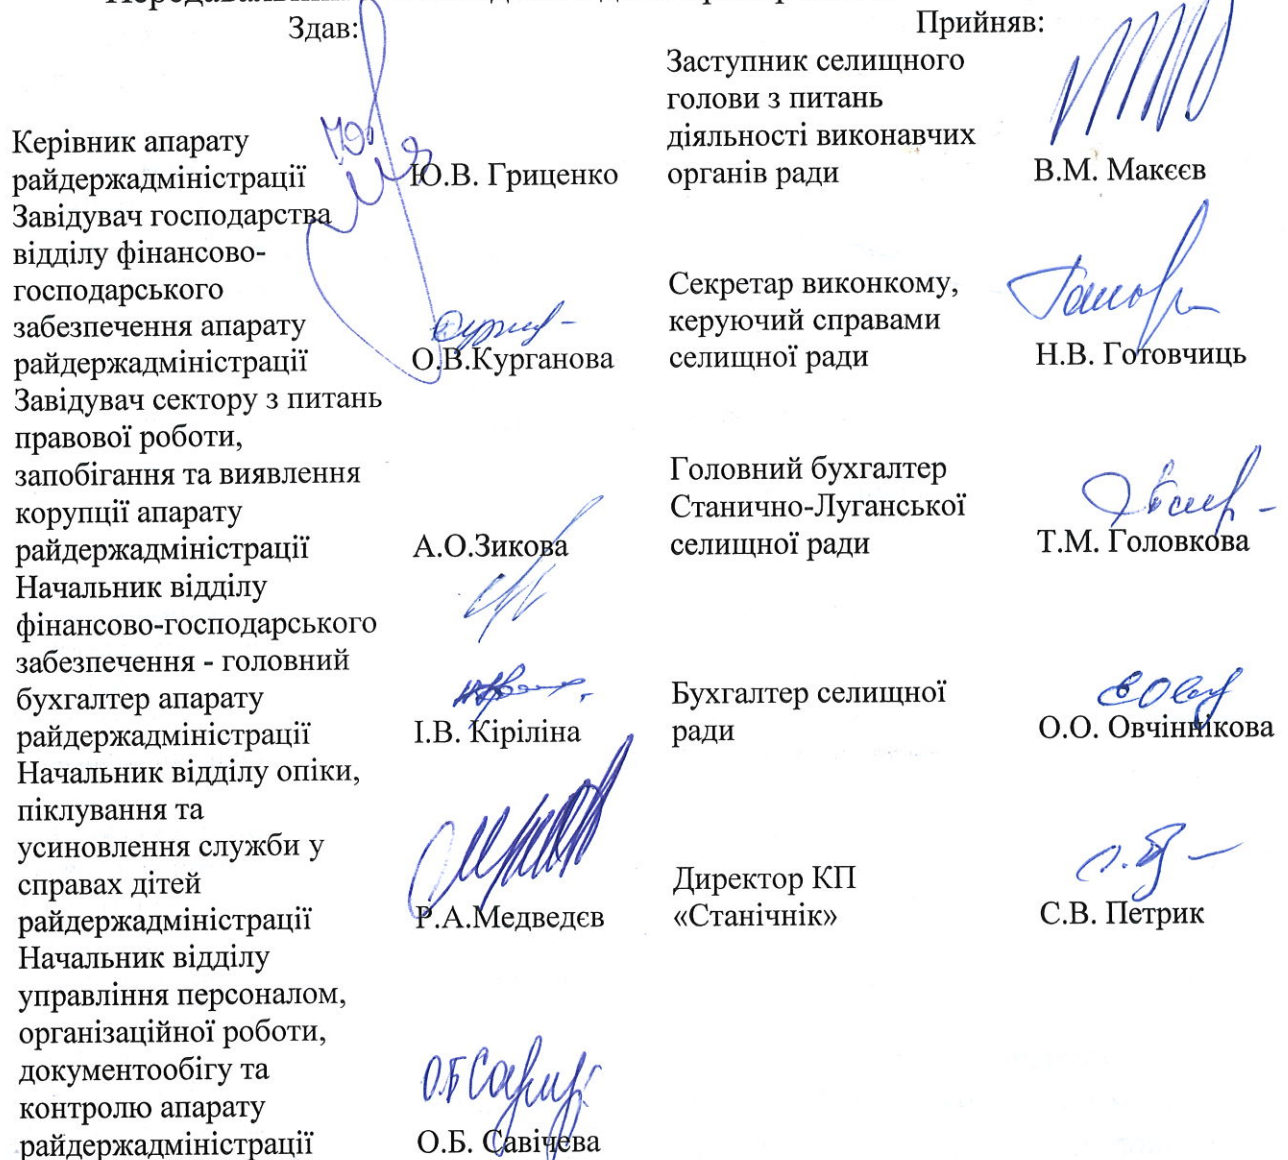 Здав:
Керівник апарату
райдержадміністрації Ю.В. Гриценко
Завідувач господарства
відділу фінансово-
господарського
забезпечення апарату
райдержадміністрації О.В.Курганова
Завідувач сектору з питань
правової роботи,
запобігання та виявлення
корупції апарату
райдержадміністрації А.О.Зикова
Начальник відділу
фінансово-господарського
забезпечення - головний
бухгалтер апарату
райдержадміністрації І.В. Кіріліна
Начальник відділу опіки,
піклування та
усиновлення служби у
справах дітей
райдержадміністрації Р.А.Медведєв
Начальник відділу
управління персоналом,
організаційної роботи,
документообігу та
контролю апарату
райдержадміністрації О.Б. Савічєва
Прийняв:
Заступник селищного
голови з питань
діяльності виконавчих
органів ради В.М. Макєєв
Секретар виконкому,
керуючий справами
селищної ради Н.В. Готовчиць
Головний бухгалтер
Станично-Луганської
селищної ради Т.М. Головкова
Бухгалтер селищної
ради О.О. Овчіннікова
Директор КП
«Станічнік» С.В. Петрик